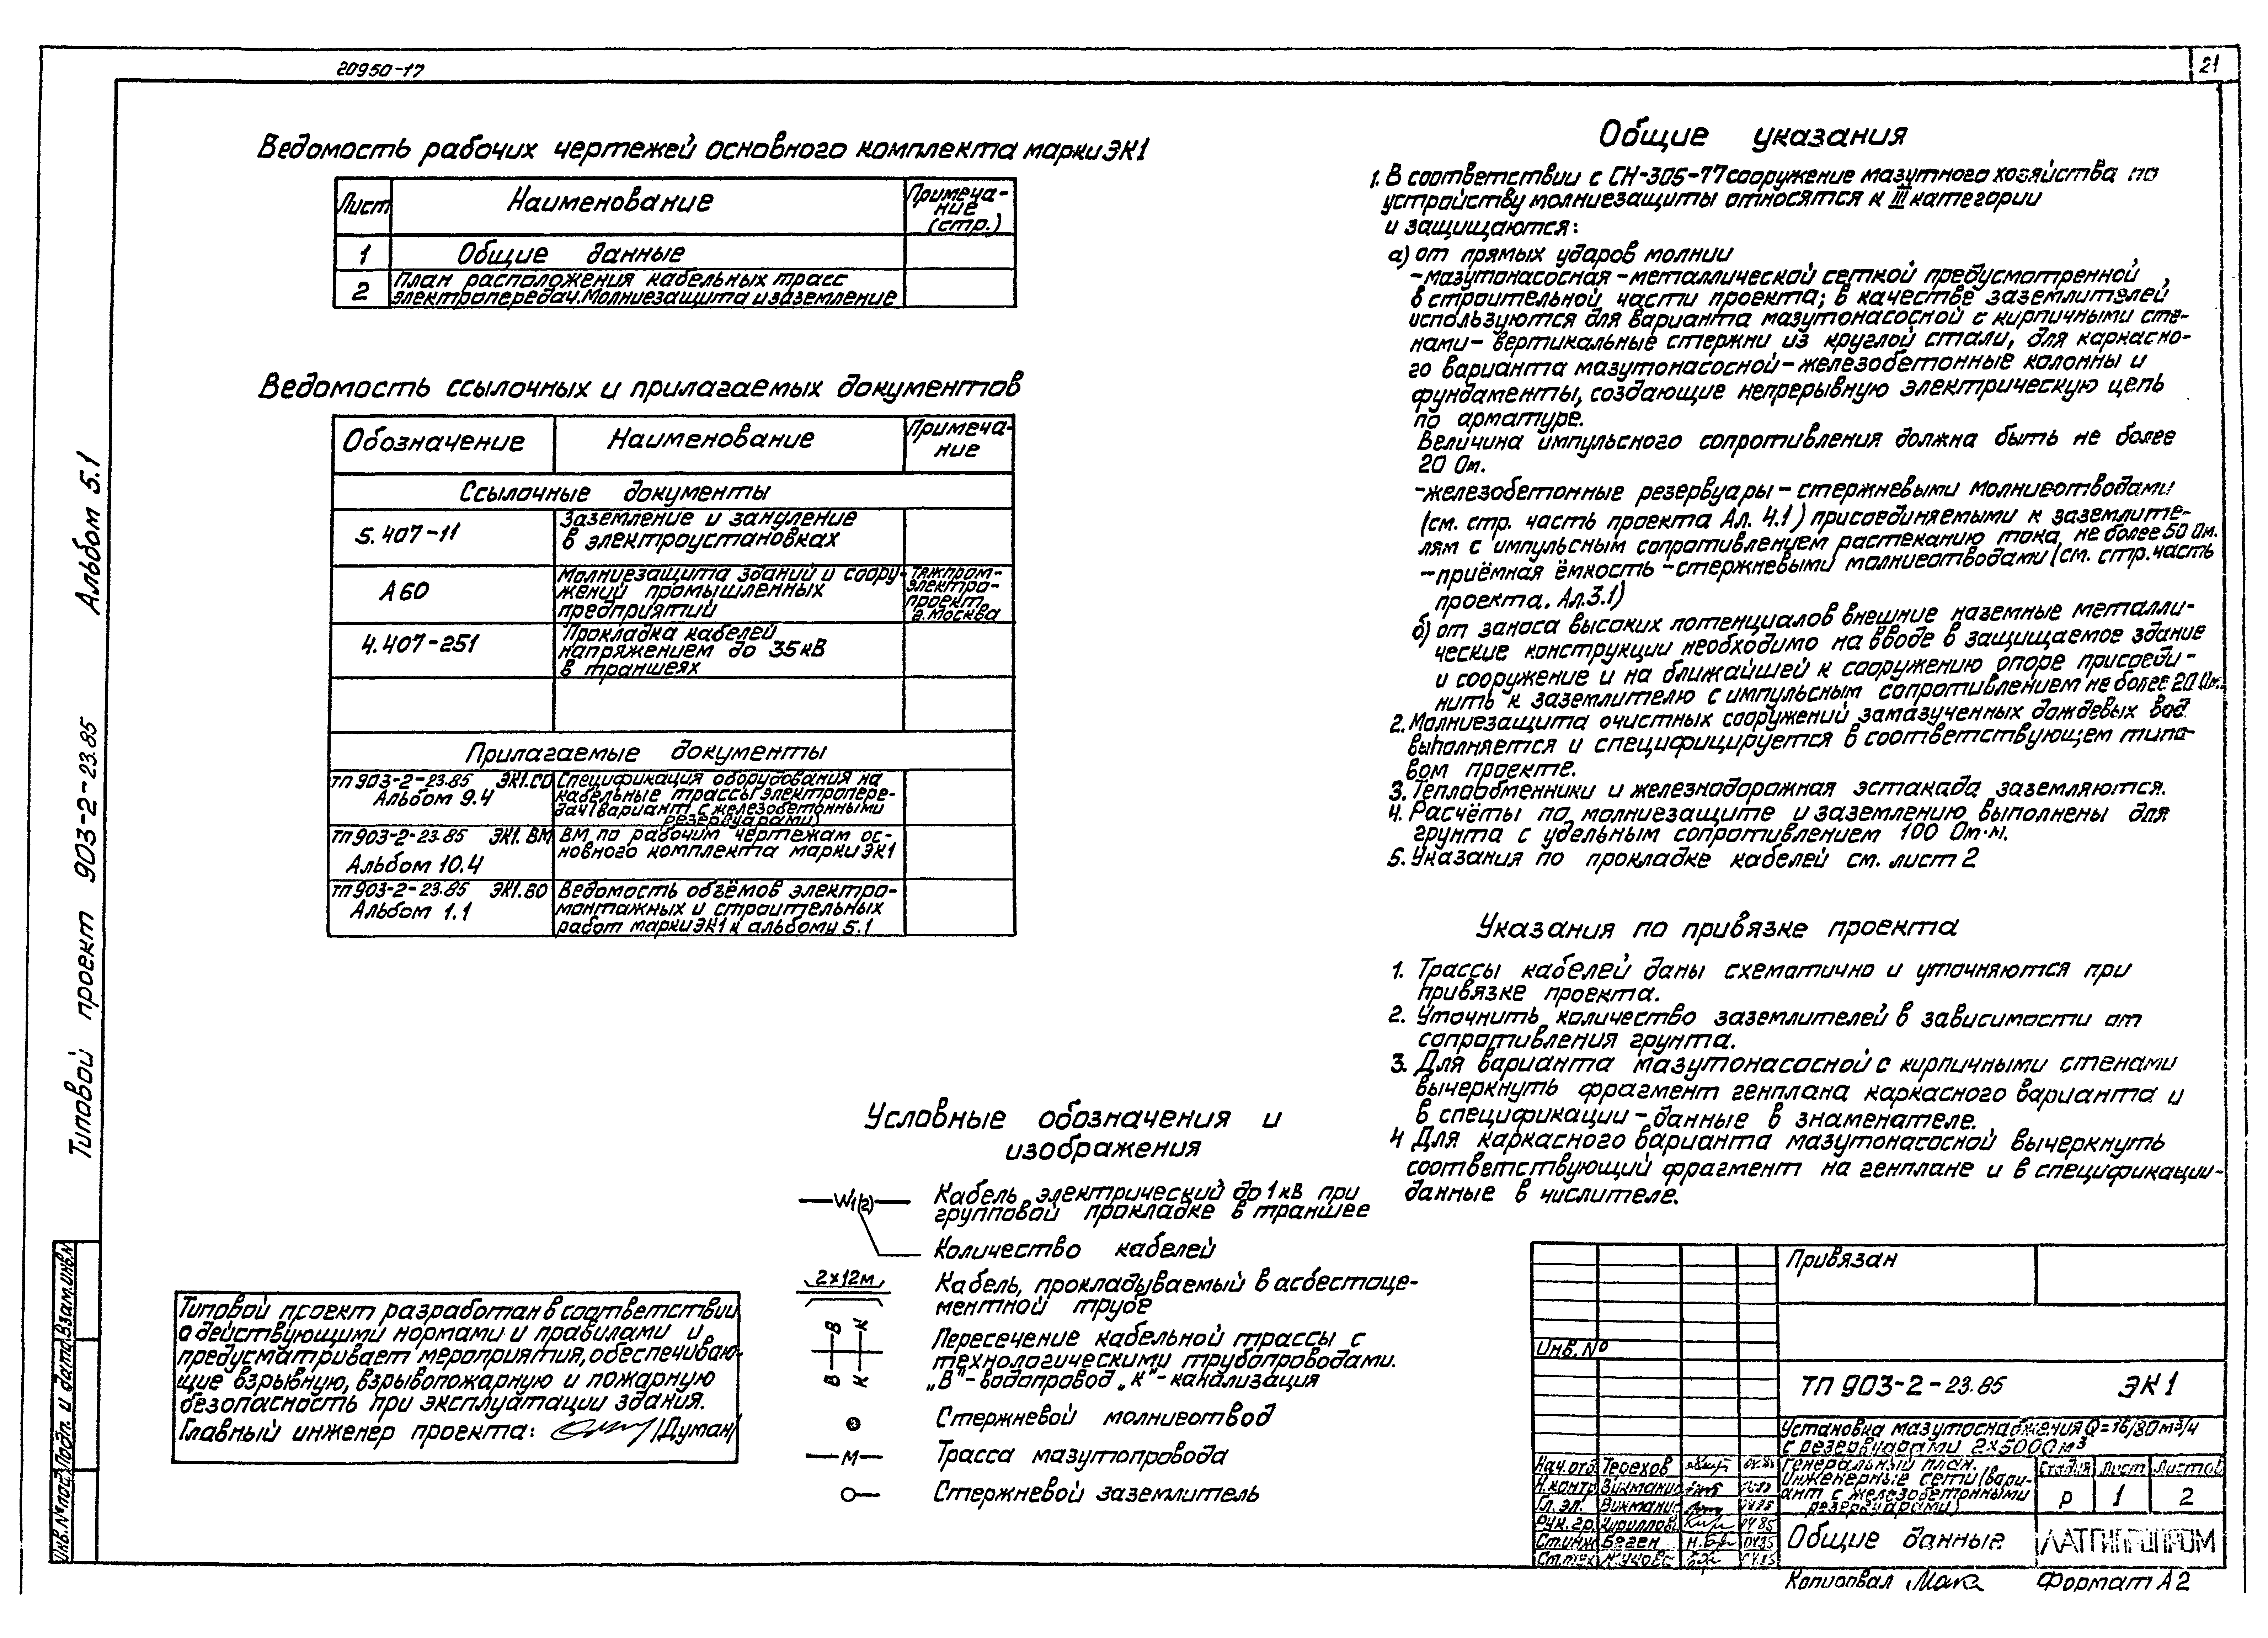 20950-17
21
Ведомость рабочих чертежей основного комплекта марки ЭК1
Лист
Наименование
Примеча-
ние
(стр.)
1
Общие данные
2
План расположения кабельных трасс
электропередач. Молниезащита и заземление
Ведомость ссылочных и прилагаемых документов
Обозначение
Наименование
Примеча-
ние
Ссылочные документы
5.407-11
Заземление и зануление
в электроустановках
А60
Молниезащита зданий и соору-
жений промышленных
предприятий
Тяжпром-
электро-
проект
г. Москва
4.407-251
Прокладка кабелей
напряжением до 35кВ
в траншеях
Прилагаемые документы
ТП 903-2-23.85 ЭК1.СО
Альбом 9.4
Спецификация оборудования на
кабельные трассы электропере-
дач (вариант с железобетонными
резервуарами)
ТП 903-2-23.85 ЭК1. ВМ
Альбом 10.4
ВМ по рабочим чертежам ос-
новного комплекта марки ЭК1
ТП 903-2-23.85 ЭК1.ВО
Альбом 1.1
Ведомость объёмов электро-
монтажных и строительных
работ марки ЭК1 к альбому 5.1
Общие указания
1. В соответствии с СН-305-77 сооружение мазутного хозяйства по
устройству молниезащиты относятся к III категории
и защищаются:
а) от прямых ударов молнии
-мазутонасосная - металлической сеткой предусмотренной
в строительной части проекта; в качестве заземлителей
используются для варианта мазутонасосной с кирпичными сте-
нами - вертикальные стержни из круглой стали, для каркасно-
го варианта мазутонасосной - железобетонные колонны и
фундаменты, создающие непрерывную электрическую цепь
по арматуре.
Величина импульсного сопротивления должна быть не более
20 Ом.
-железобетонные резервуары - стержневыми молниеотводами
(см. стр. часть проекта Ал. 4.1) присоединяемыми к заземлите-
лям с импульсным сопротивлением растеканию тока не более 50 Ом.
-приёмная ёмкость - стержневыми молниеотводами (см. стр. часть
проекта. Ал.3.1)
б) от заноса высоких потенциалов внешние наземные металли-
ческие конструкции необходимо на вводе в защищаемое здание
и сооружение и на ближайшей к сооружению опоре присоеди-
нить к заземлителю с импульсным сопротивлением не более 20 Ом.
2. Молниезащита очистных сооружений замазученных дождевых вод
выполняется и специфицируется в соответствующем типо-
вом проекте.
3. Теплообменники и железнодорожная эстакада заземляются.
4. Расчёты по молниезащите и заземлению выполнены для
грунта с удельным сопротивлением 100 Ом·м.
5. Указания по прокладке кабелей см. лист 2
Указания по привязке проекта
1. Трассы кабелей даны схематично и уточняются при
привязке проекта.
2. Уточнить количество заземлителей в зависимости от
сопротивления грунта.
3. Для варианта мазутонасосной с кирпичными стенами
вычеркнуть фрагмент генплана каркасного варианта и
в спецификации - данные в знаменателе.
4 Для каркасного варианта мазутонасосной вычеркнуть
соответствующий фрагмент на генплане и в спецификации-
данные в числителе.
Условные обозначения и
изображения
W1(2)
Кабель электрический до 1кВ при
групповой прокладке в траншее
Количество кабелей
2×12м
Кабель, прокладываемый в асбестоце-
ментной трубе
В К
В К
Пересечение кабельной трассы с
технологическими трубопроводами.
„В"- водопровод „К"- канализация
Стержневой молниеотвод
М
Трасса мазутопровода
Стержневой заземлитель
Типовой проект разработан в соответствии
с действующими нормами и правилами и
предусматривает мероприятия, обеспечиваю-
щие взрывную, взрывопожарную и пожарную
безопасность при эксплуатации здания.
Главный инженер проекта: /Думан/
Альбом 5.1
Типовой проект 903-2-23.85
Взам.инв.№
Подп. и дата
Инв.№ подл
Привязан
Инв. №
ТП 903-2-23.85 ЭК1
Установка мазутоснабжения Q=16/30 м³/ч
с резервуарами 2×5000 м³
Нач.отд Терехов
Н.контр Викманис
Гл. эл. Викманис 04.85
Рук. гр. Кириллов 04 85
Ст.инж Боген 04.85
Ст.тех
Генеральный план.
Инженерные сети (вари-
ант с железобетонными
резервуарами)
Стадия Лист Листов
Р 1 2
Общие данные
ЛАТГИПРОПРОМ
Копировал
Формат А2